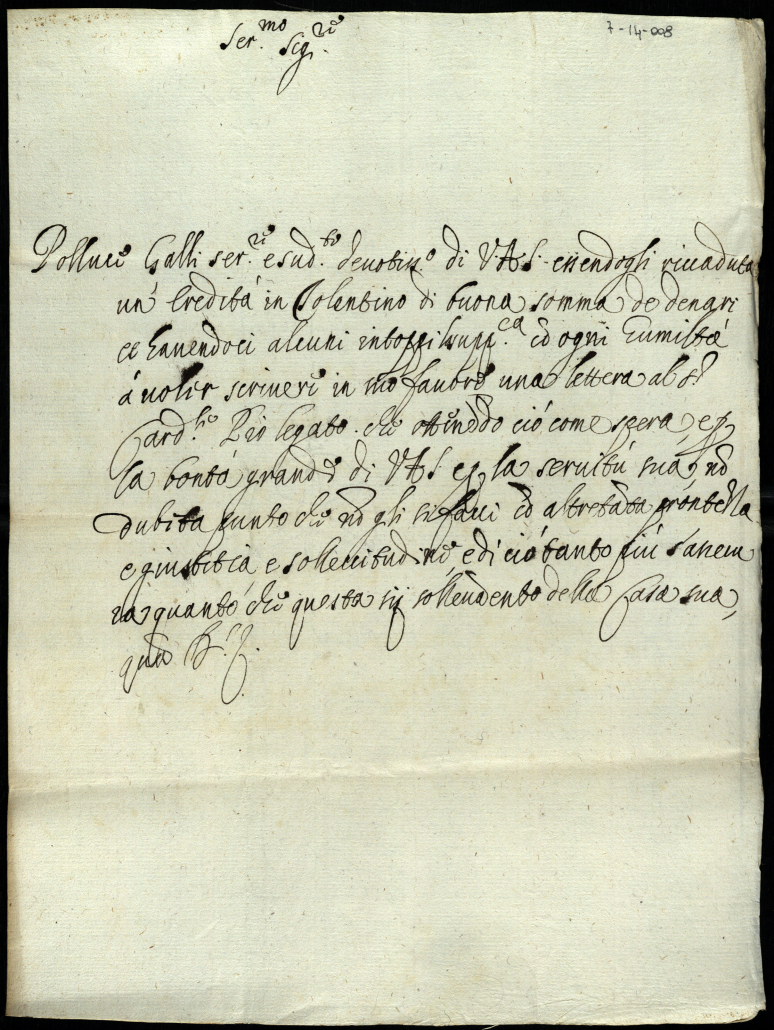 7-14-008
Ser.mo Sig.re
Polluce Galli ser.re e sud.to devotiss.o di V.A.S. essendogli ricaduta
un' eredità in Solentino di buona somma de denari
et havendoci alcuni intoppi supp.ca cõ ogni humiltà
à voler scrivere in suo favore una lettera al S.r
Card.le Pio legato che ottenẽdo ciò come spera, e p
la bontà grande di V.A.S. e p la servitù sua, nõ
dubita punto che nõ gli si facci cõ altretãta prontezza
e giustitia e sollecitudine, e di ciò tanto più s'assicu
ra quanto che questa sij sollevamento della Casa sua,